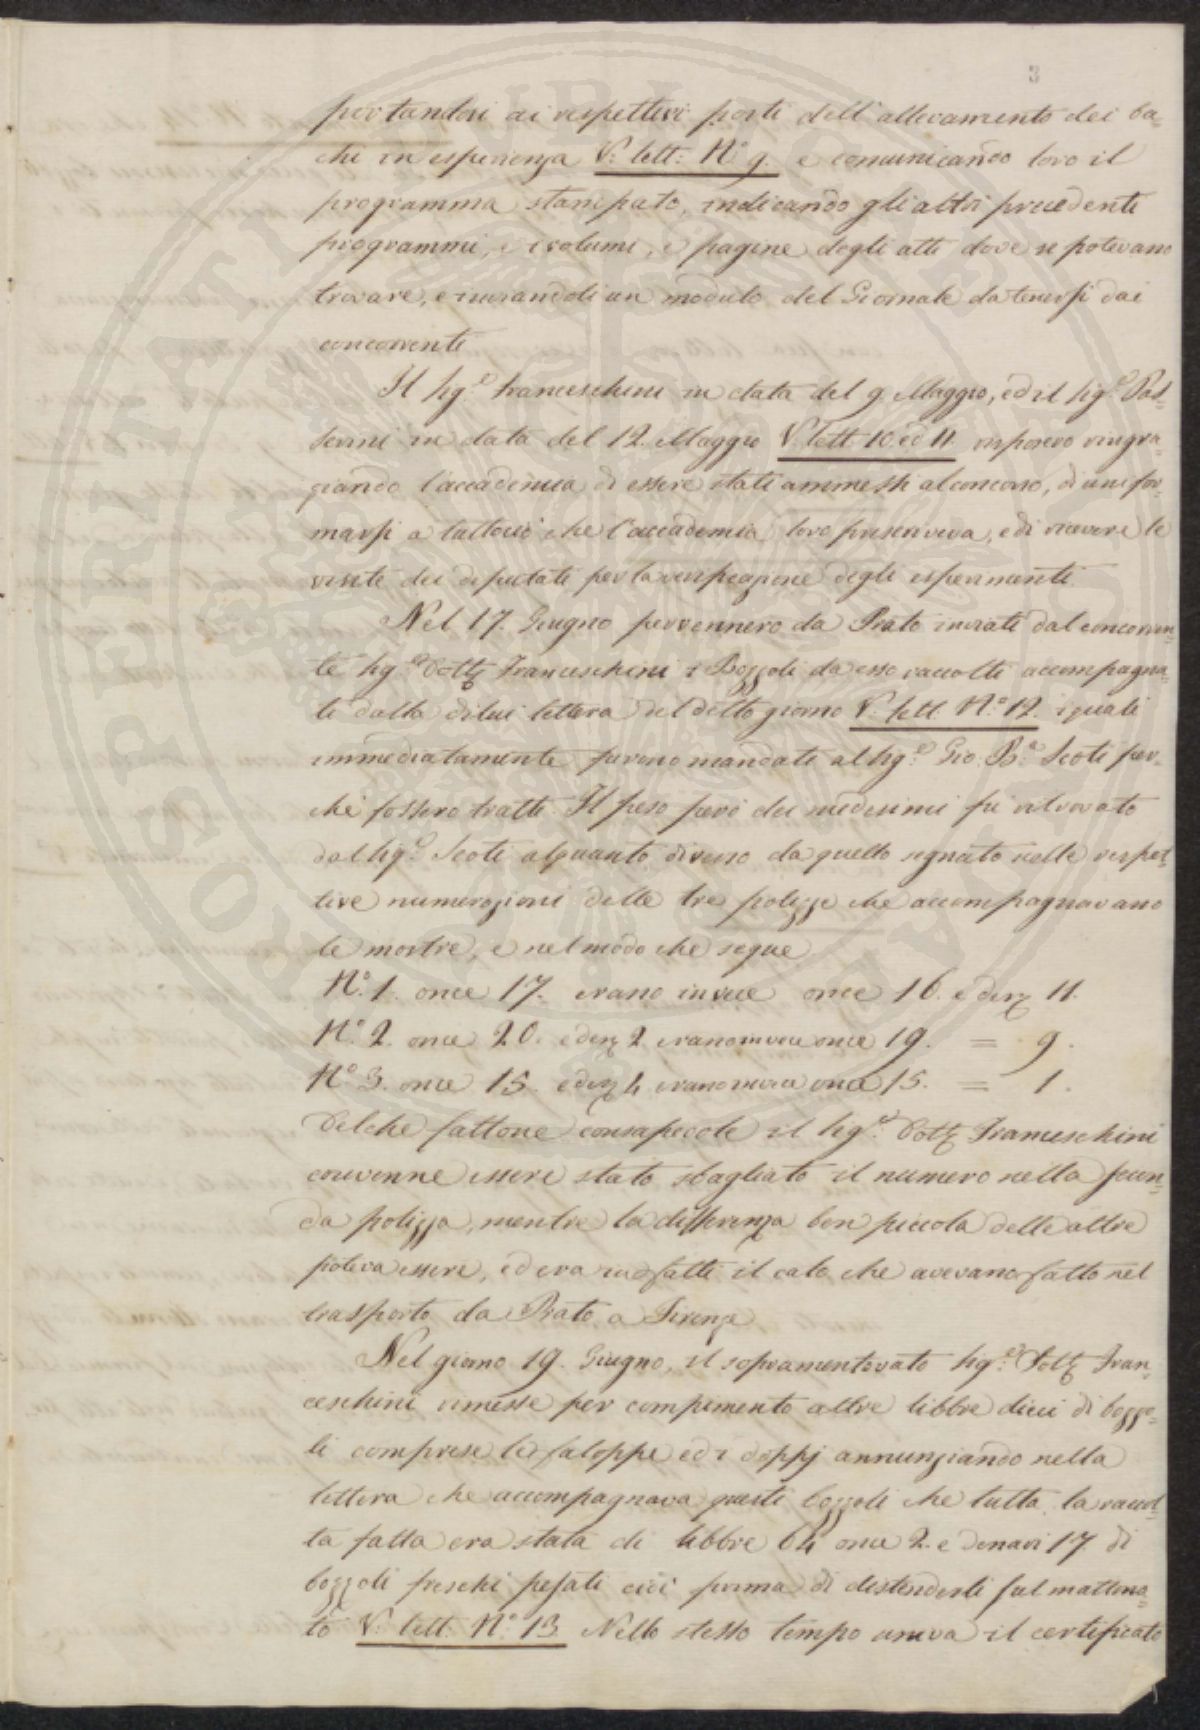 3
portandosi ai respettivi posti dell'allevamento dei ba-
chi in esperienza V. lett. N.º 9. e comunicando loro il
programma stampato, indicando gli altri precedenti
programmi, e i volumi, e pagine degli atti dove si potevano
trovare, e inviandoli un modulo del Giornale da tenersi dai
concorrenti
Il Sig.e Franceschini in data del 9 Maggio, ed il Sig.e Pas-
serini in data del 12. Maggio V. lett. 10 ed 11. risposero ringra-
ziando l'accademia di essere stati ammessi al concorso, di unifor-
marsi a tuttociò che l'accademia loro prescriveva, e di ricevere le
visite dei deputati per la verificazione degli esperimenti
Nel 17. Giugno pervennero da Prato inviati dal concorren-
te Sig.e Dott. Franceschini i Bozzoli da esso raccolti accompagna-
ti dalla di lui lettera del detto giorno V. lett. N.º 12. i quali
immediatamente furono mandati al Sig.e Gio. B.a Scoti per-
chè fossero tratti. Il peso però dei medesimi fu ritrovato
dal Sig.e Scoti alquanto diverso da quello segnato nelle respet-
tive numerazioni delle tre polizze che accompagnavano
le mostre, e nel modo che segue
N.º 1. once 17. erano invece once 16. e den. 11.
N.º 2. once 20. e den. 2 erano invece once 19. = 9.
N.º 3. once 15. e den. 4 erano invece once 15. = 1.
Delche fattone consapevole il Sig.e Dott. Franceschini
convenne essere stato sbagliato il numero nella secon-
da polizza, mentre la differenza ben piccola delle altre
poteva essere, ed era infatti il calo che avevano fatto nel
trasporto da Prato a Firenze
Nel giorno 19. Giugno, il sopramentovato Sig.e Dott. Fran-
ceschini rimesse per compimento altre libbre dieci di bozzo-
li comprese le faloppe ed i doppj annunziando nella
lettera che accompagnava questi bozzoli che tutta la raccol-
ta fatta era stata di libbre 64 once 2. e denari 17 di
bozzoli freschi pesati cioè prima di distenderli sul mattona-
to V. lett. N.º 13. Nello stesso tempo univa il certificato
PROSPERITATI